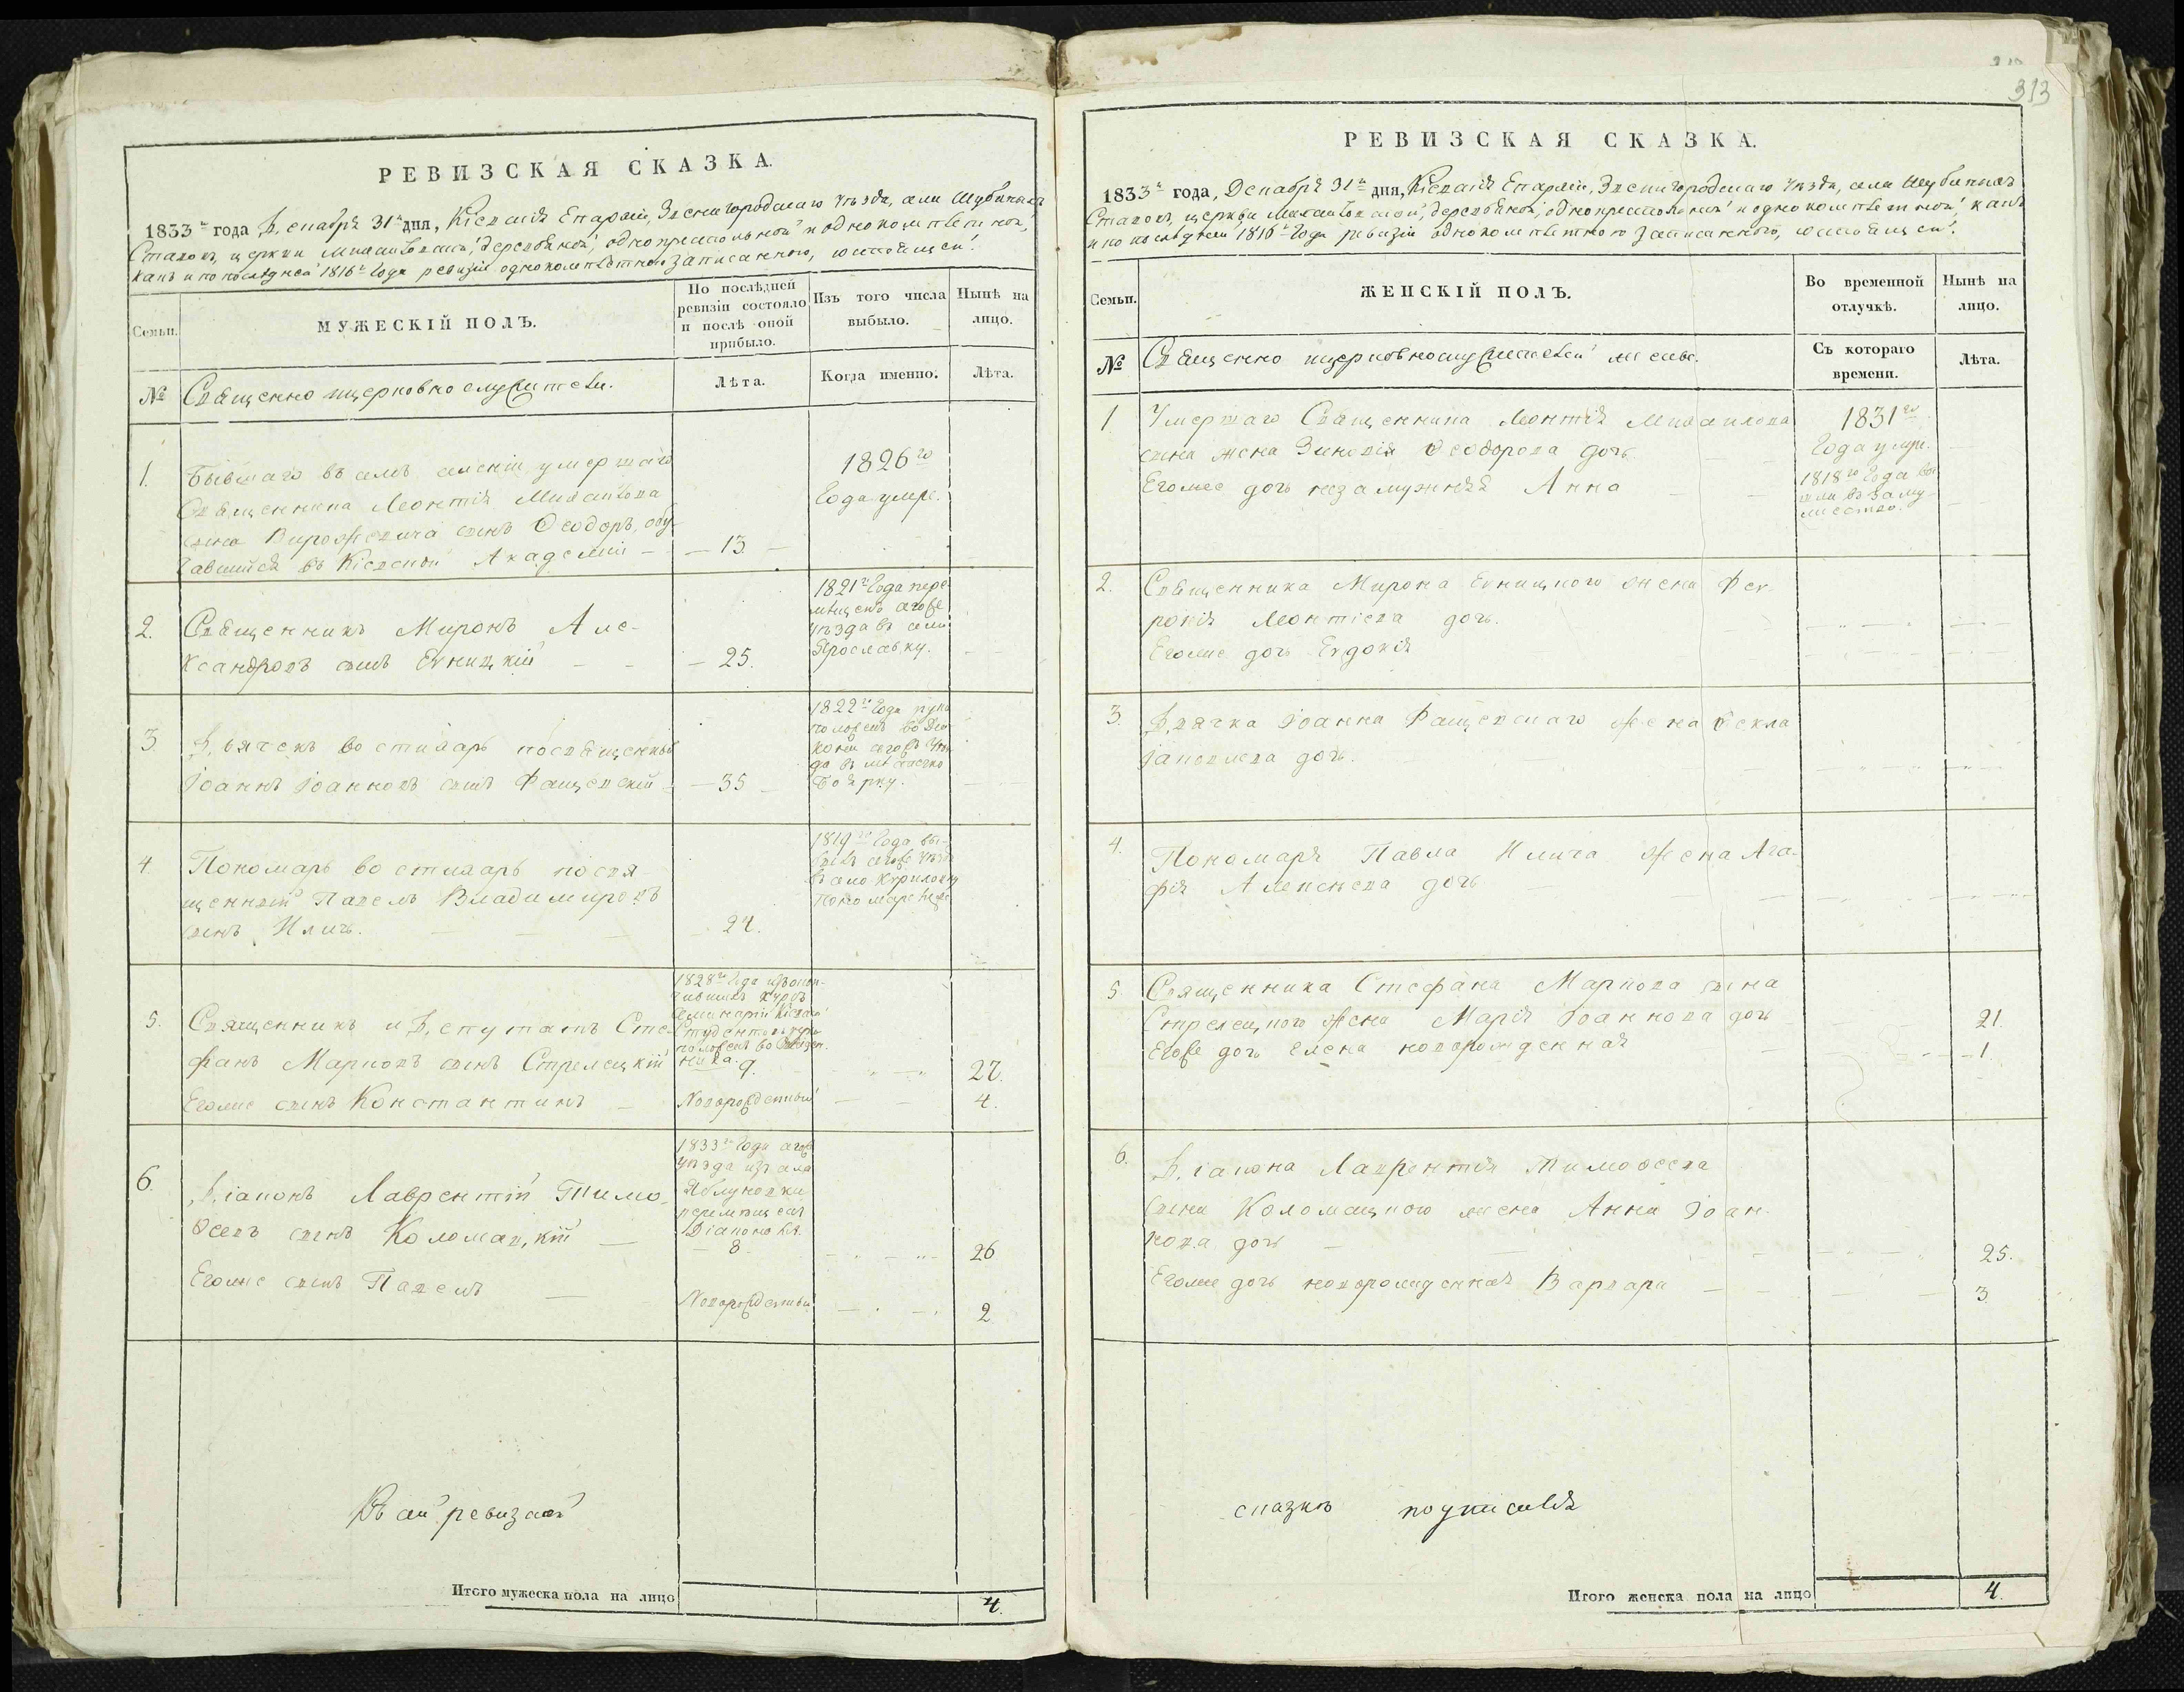 РЕВИЗСКАЯ СКАЗКА.
1833 го года Декабря 31 дня, Кіевскія Епархіи, Звенигородскаго уѣзда, села Шубиныхъ
Ставовъ, церкви Михайловской, деревяной, однопрестольной и однокомплетной,
какъ и по послѣдней 1816 года ревизіи однокомплетною записанною, состоящей.
Семьи.
МУЖЕСКІЙ ПОЛЪ.
По послѣдней
ревизіи состояло
и послѣ оной
прибыло.
Изъ того числа
выбыло.
Нынѣ на
лицо.
№
Священно и церковнослужители.
Лѣта.
Когда именно.
Лѣта.
1. Бывшаго въ семъ селеніи умершаго
Священника Леонтія Михайлова
сына сынъ Ѳеодоръ, обу-
чавшийся въ Кіевской Академіи — 13
1826 го
Года умре.
2. Священникъ Миронъ Але-
ксандровъ сынъ Евницкій — 25.
1821 го Года пере-
мѣщенъ сегоже
уѣзда въ село
Ярославку.
3. Дьячекъ во стихарь посвященный
Іоаннъ Іоанновъ сынъ Фащевскій — 35
1822 го Года руко-
положенъ во Діа-
коны сегожъ уѣз-
да въ мѣстечко
Боярку.
4. Пономарь во стихарь посвя-
щенный Павелъ Владимировъ
сынъ Иличь. 24.
1819 го Года вы-
былъ сегоже уѣзда
въ село
5. Священникъ и Депутатъ Сте-
фанъ Марковъ сынъ Стрелецкій
1828 го Года изъ окон-
чившихъ курсъ
Семинаріи Кіевской
Студентовъ руко-
положенъ во Священ-
ника. 9.
27.
Егоже сынъ Константинъ —
Новорожденный
4.
6. Діаконъ Лаврентій Тимо-
ѳеевъ сынъ Коломацкій —
1833 го Года сегоже
уѣзда изъ села
Яблуновки
перемѣщенъ
Діакономъ.
8.
26
Егоже сынъ Павелъ —
Новорожденный
2
Въ сей ревизской
Итого мужеска пола на лицо
4.
313
РЕВИЗСКАЯ СКАЗКА.
1833 го года, Декабря 31 дня, Кіевскія Епархіи, Звенигородскаго уѣзда, села Шубиныхъ
Ставовъ, церкви Михайловской, деревяной, однопрестольной и однокомплетной, какъ
и по послѣдней 1816 Года ревизіи однокомплетною записанною, состоящей.
Семьи.
ЖЕНСКІЙ ПОЛЪ.
Во временной
отлучкѣ.
Нынѣ на
лицо.
№
Священно и церковнослужителей жены.
Съ котораго
времени.
Лѣта.
1 Умершаго Священника Леонтія Михайлова
сына жена Зиновія Ѳеодорова дочь
1831 го
Года умре.
Егоже дочь незамужняя Анна
1818 го Года вы-
шла въ заму-
жество.
2. Священника Мирона Евницкого жена Фев-
ронія Леонтіева дочь.
Егоже дочь Евдокія
3 Дьячка Іоанна Фащевскаго жена Ѳекла
Іаковлева дочь.
4. Пономаря Павла Илича жена Ага-
фія Алексѣева дочь
5 Священника Стефана Маркова сына
Стрелецкого жена Марія Іоаннова дочь 21.
Егоже дочь Елена новорожденная 1.
6. Діакона Лаврентія Тимоѳеева
сына Коломацкого жена Анна Іоан-
нова дочь 25.
Егоже дочь новорожденная Варвара 3
сказкѣ подписался
Итого женска пола на лицо
4.